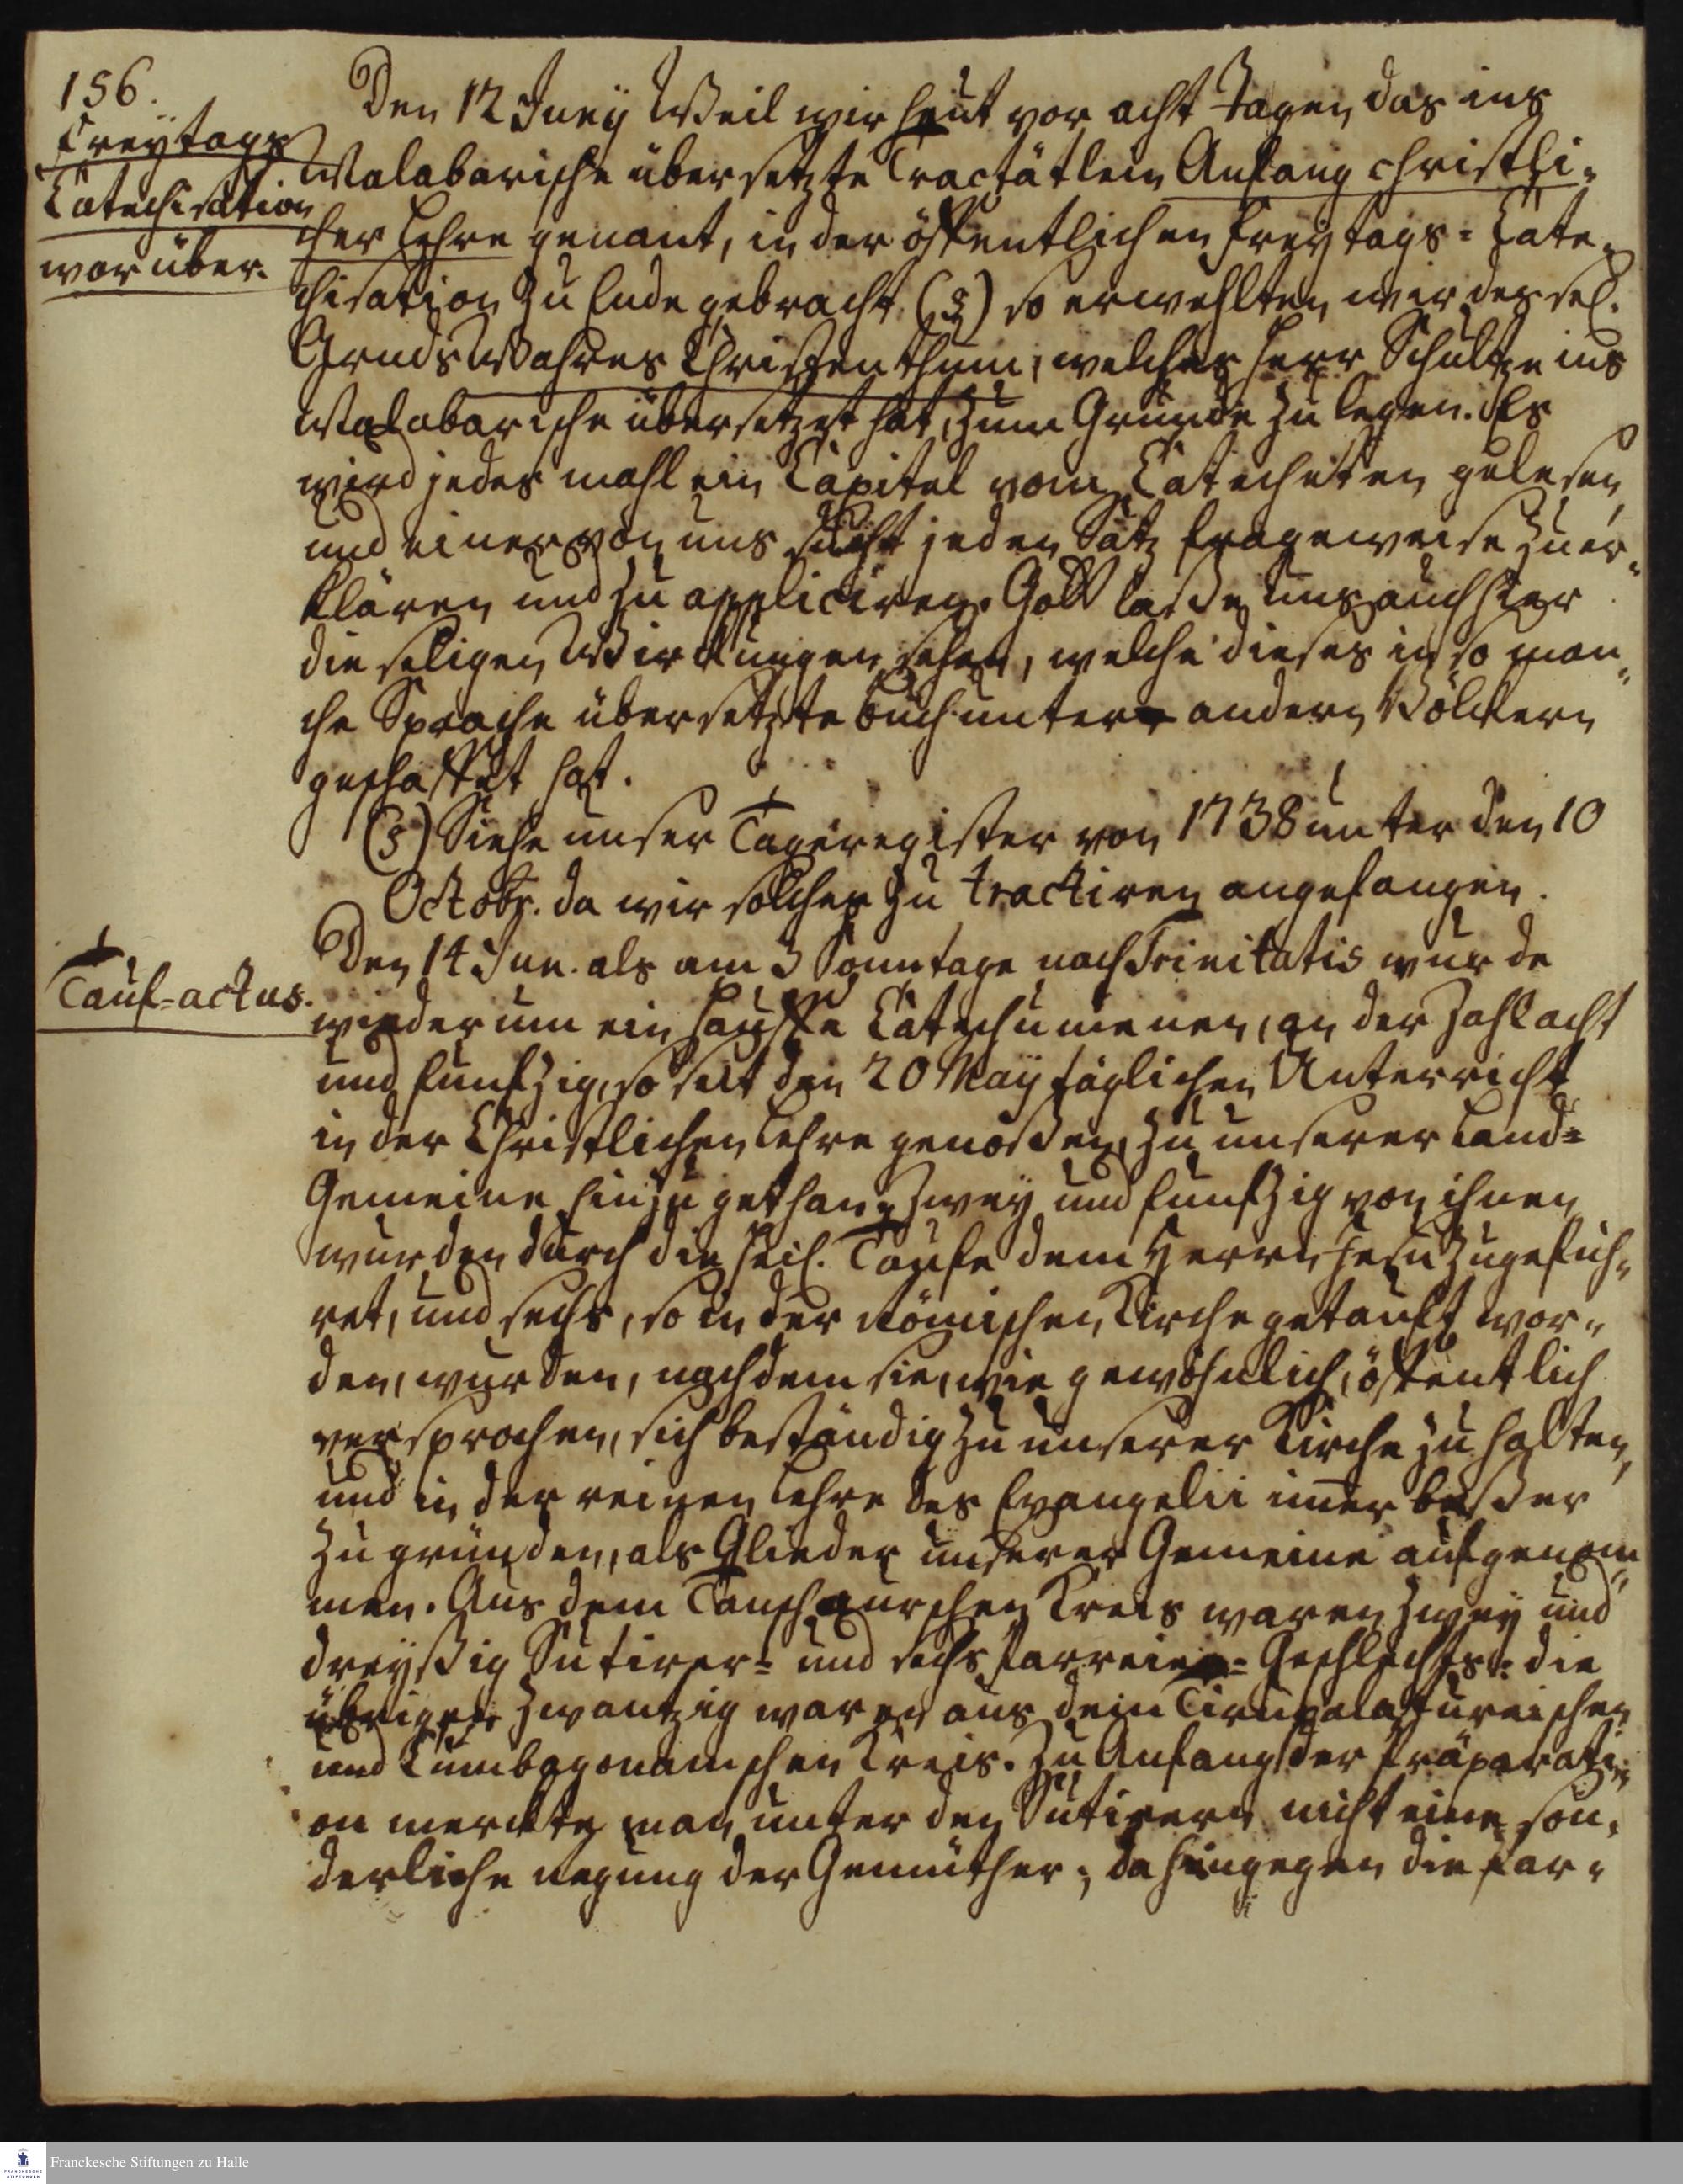 156.
Freytags
Catechisation
worüber.
Den 12 Junÿ Weil wir heut vor acht Tagen das ins
Malabarische übersetzte Tractätlein Anfang christli-
cher Lehre genant, in der öffentlichen Freytags-Cate-
chisation zu Ende gebracht, (3) so erwehlten wir des sel.
Arnds Wahres Christenthum, welches Herr Schultze ins
Malabarische übersetzt hat, zum Grunde zu legen. Es
wird jedes mahl ein Capitel vom Catecheten gelesen,
und einer von uns sucht jeden Satz frageweise zu er-
klären und zu appliciren. Gott laße uns auch hier
die seligen Wirckungen sehen, welche dieses in so man-
che Sprache übersetzte Buch unter andern Völckern
geschaffet hat.
(3) Siehe unser Tageregister von 1738 unter den 10
Octobr. da wir solches zu tractiren angefangen.
Tauf-actus.
Den 14 Jun. als am 3 Sonntage nach Trinitatis wurde
wiederum ein Hauffe Catechumenen, an der Zahl acht
und funfzig, so seit den 20 Maÿ täglichen Unterricht
in der Christlichen Lehre genoßen, zu unserer Land-
Gemeine hinzu gethan. Zwey und funfzig von ihnen
wurden durch die heil. Taufe dem Herrn Jesu zugefüh-
ret, und sechs, so in der Römischen Kirche getauft wor-
den, wurden, nachdem sie, wie gewöhnlich, öffentlich
versprochen, sich beständig zu unserer Kirche zu halten,
und in der reinen Lehre des Evangelii imer beßer
zu gründen, als Glieder unserer Gemeine aufgenom-
men. Aus dem Tanschaurschen Kreis waren zwey und
dreyßig Sutirer- und sechs Parreier-Geschlechts: die
übrigen zwantzig waren aus dem Tirupalatureischen
und Cumbagonamschen Kreis. Zu Anfang der Präparati-
on merckte man unter den Sutirern nicht eine son-
derliche regung der Gemüther; da hingegen die Par-
Franckesche Stiftungen zu Halle